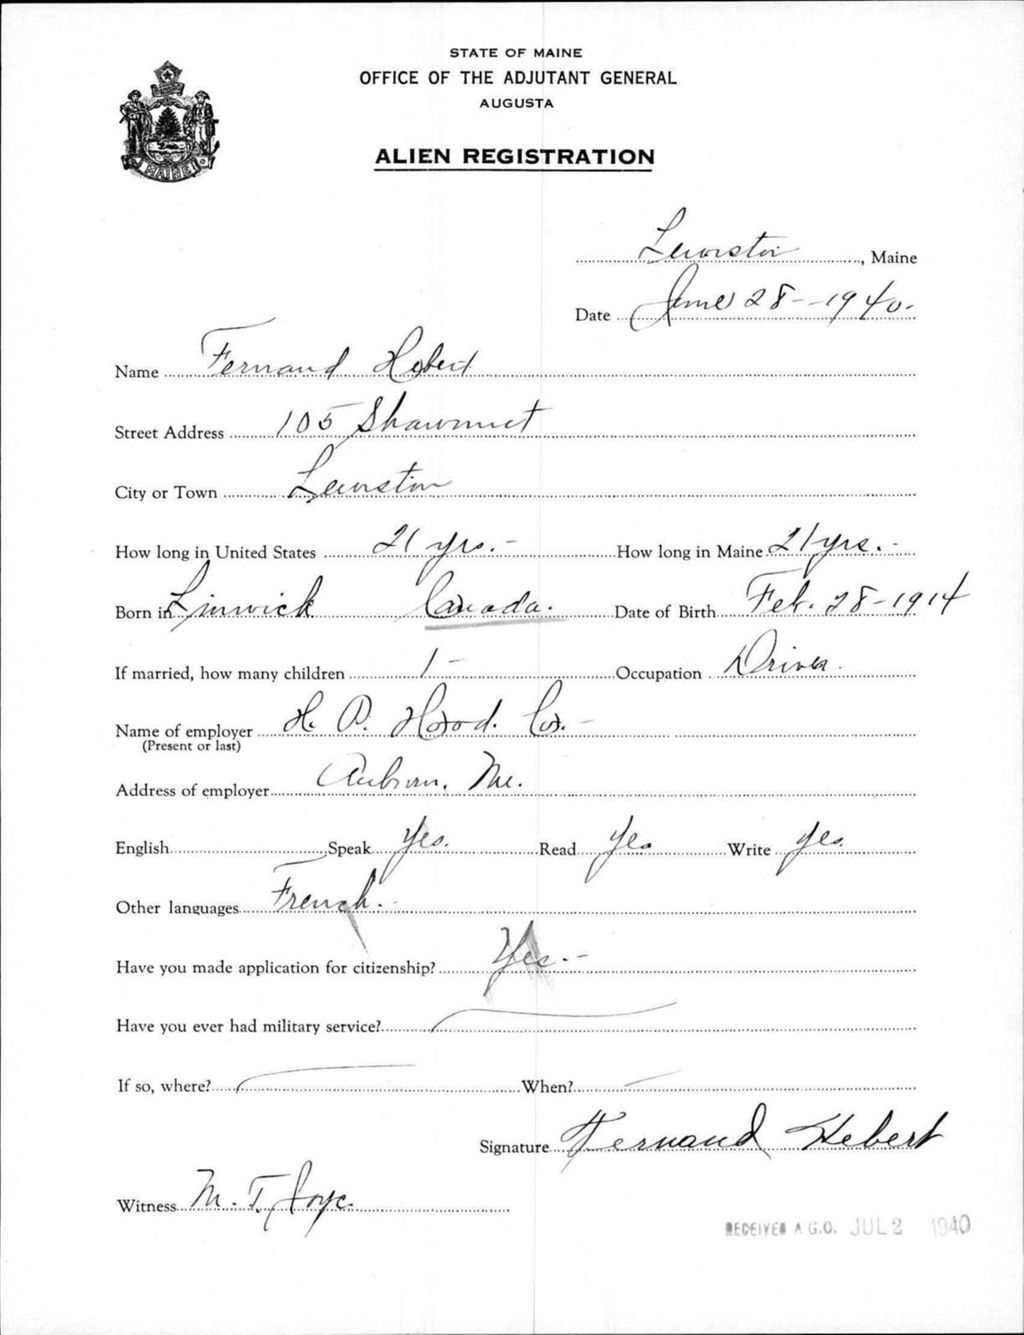 STATE OF MAINE
OFFICE OF THE ADJUTANT GENERAL
AUGUSTA
ALIEN REGISTRATION
MAINE
Lewiston, Maine
Date June 28--1940.
Name Fernand Hebert
Street Address 105 Shawmut
City or Town Lewiston
How long in United States 21 yrs.- How long in Maine 21 yrs.-
Born in Linwick Canada. Date of Birth Feb. 28-1914
If married, how many children 1- Occupation Driver.
Name of employer H. P. Hood. Co.-
(Present or last)
Address of employer Auburn, Me.
English Speak Yes. Read Yes Write Yes.
Other languages French.-
Have you made application for citizenship? Yes.-
Have you ever had military service?
If so, where? When?
Signature Fernand Hebert
Witness M. T. Joyce
RECEIVED A.G.O. JUL 2 1940